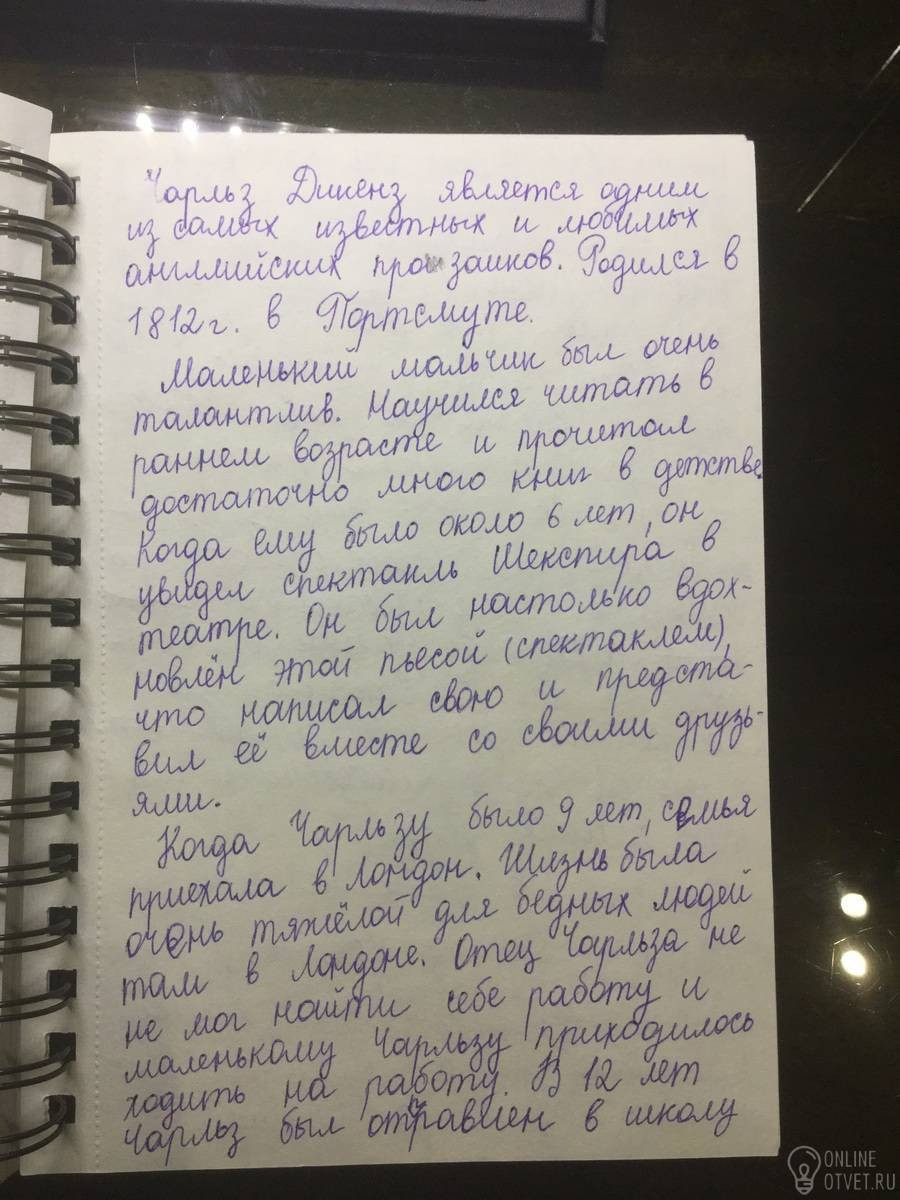 Чарльз Дикенз является одним
из самых известных и любимых
английских прозаиков. Родился в
1812 г. в Портсмуте.
Маленький мальчик был очень
талантлив. Научился читать в
раннем возрасте и прочитал
достаточно много книг в детстве.
Когда ему было около 6 лет, он
увидел спектакль Шекспира в
театре. Он был настолько вдох-
новлён этой пьесой (спектаклем),
что написал свою и предста-
вил её вместе со своими друзь-
ями.
Когда Чарльзу было 9 лет, семья
приехала в Лондон. Жизнь была
очень тяжёлой для бедных людей
там в Лондоне. Отец Чарльза не
не мог найти себе работу и
маленькому Чарльзу приходилось
ходить на работу. В 12 лет
Чарльз был отправлен в школу
ONLINE
OTVET.RU